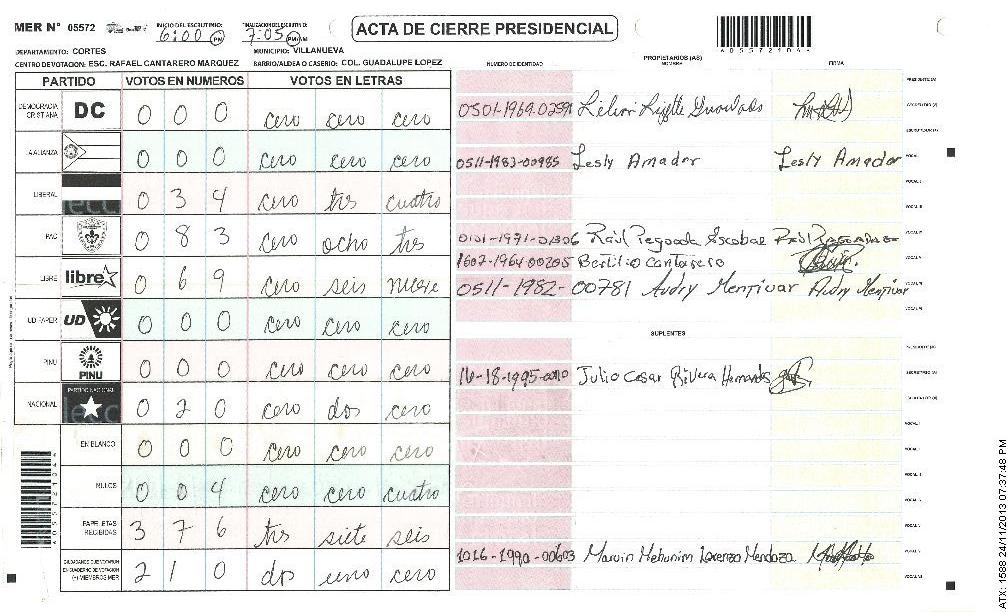 MER N° 05572 INICIO DEL ESCRUTINIO: 6:00 PM FINALIZACION DEL ESCRUTINIO: 7:05 PM
ACTA DE CIERRE PRESIDENCIAL
A05572104A
DEPARTAMENTO: CORTES MUNICIPIO: VILLANUEVA
CENTRO DE VOTACION: ESC. RAFAEL CANTARERO MARQUEZ BARRIO/ALDEA O CASERIO: COL. GUADALUPE LOPEZ
PARTIDO VOTOS EN NUMEROS VOTOS EN LETRAS
DEMOCRACIA CRISTIANA DC 0 0 0 cero cero cero
LA ALIANZA 0 0 0 cero cero cero
LIBERAL 0 3 4 cero tres cuatro
PAC 0 8 3 cero ocho tres
LIBRE libre 0 6 9 cero seis nueve
UD FAPER UD 0 0 0 cero cero cero
PINU PINU 0 0 0 cero cero cero
NACIONAL PARTIDO NACIONAL 0 2 0 cero dos cero
EN BLANCO 0 0 0 cero cero cero
NULOS 0 0 4 cero cero cuatro
PAPELETAS RECIBIDAS 3 7 6 tres siete seis
2 1 0 dos uno cero
NUMERO DE IDENTIDAD
PROPIETARIOS (AS)
NOMBRE
FIRMA
0511-1983-00985 Lesly Amador Lesly Amador
1607-1964-00205 Bertilio Cantarero
0511-1982-00781 Audry Menjivar Audry Menjivar
SUPLENTES
Julio Cesar Rivera Hernandez
Lorenzo Mendoza
ATX: 1588 24/11/2013 07:37:48 PM